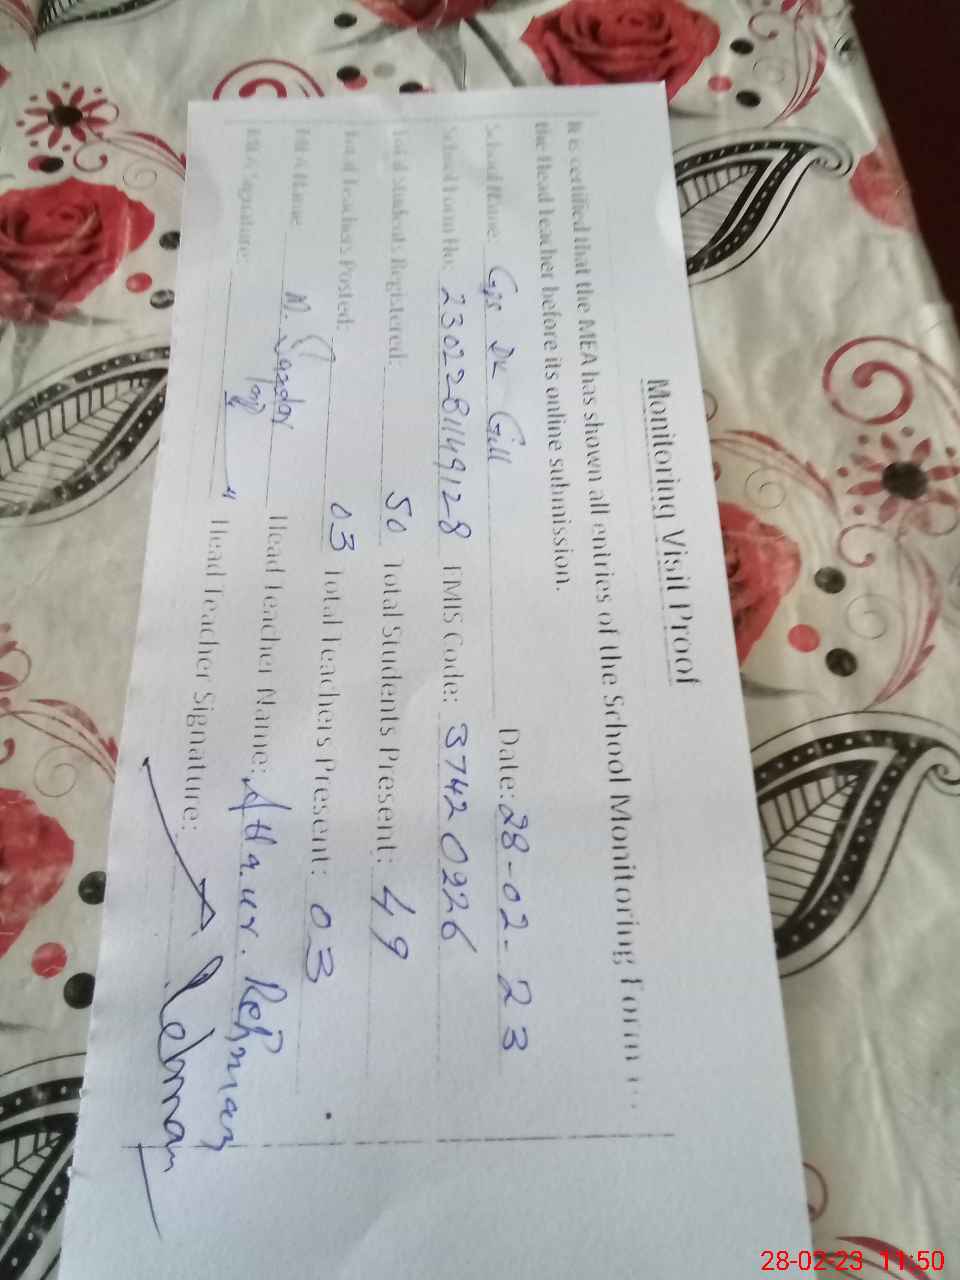 Monitoring Visit Proof
It is certified that the MEA has shown all entries of the School Monitoring Form to
the Head Teacher before its online submission.
School Name: Gps DK Gill Date: 28-02-23
School Form No: 2302281149128 EMIS Code: 37420226
Total Students Registered: 50 Total Students Present: 49
Total Teachers Posted: 03 Total Teachers Present: 03
MEA Name: M. Head Teacher Name: Atta.ur.Rehman
MEA Signature: Head Teacher Signature: Rehman
28-02-23 11:50